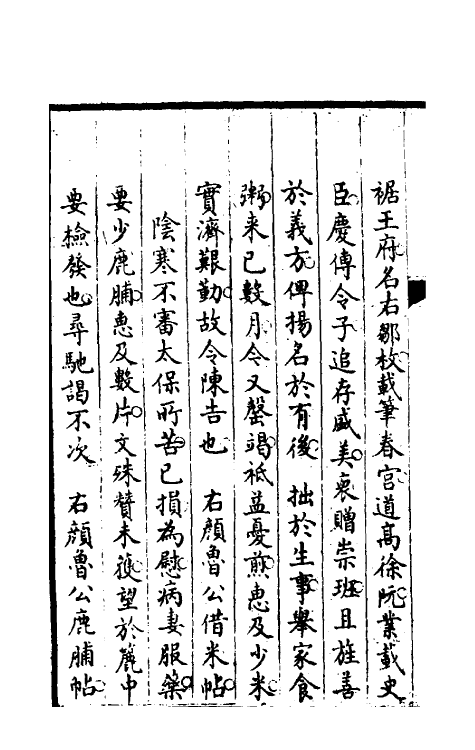 裾王府名右鄒枚載筆春宫道髙徐阮業載史
臣慶傳令子追存盛美褒贈崇班且旌善
於義方俾揚名於有後　拙於生事舉家食
粥来已數月今又罄竭祗益憂煎惠及少米
實濟艱勤故令陳告也　右顔魯公借米帖
陰寒不審太保所苦已損為慰病妻服藥
要少鹿脯惠及數片文殊贊未獲望於簏中
要檢發也尋馳謁不次　右顔魯公鹿脯帖